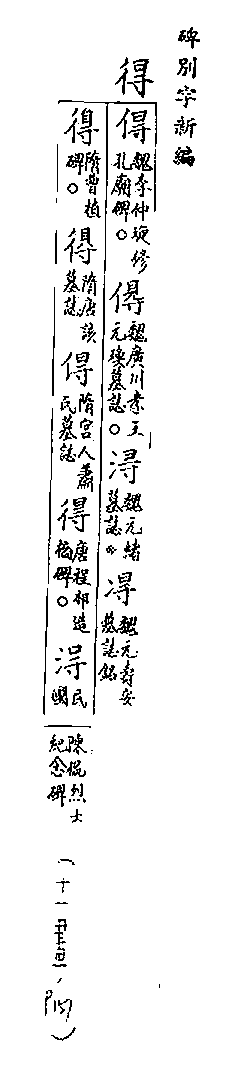 碑別字新編
得
得魏李仲璇修孔廟碑。得魏廣川孝王元煥墓誌。淂魏元緒墓誌。淂魏元壽安墓誌銘
得隋曹植碑。得隋唐該墓誌得隋宮人蕭氏墓誌得唐程邨造橋碑。淂民國陳侃烈士紀念碑
(十一畫,附)